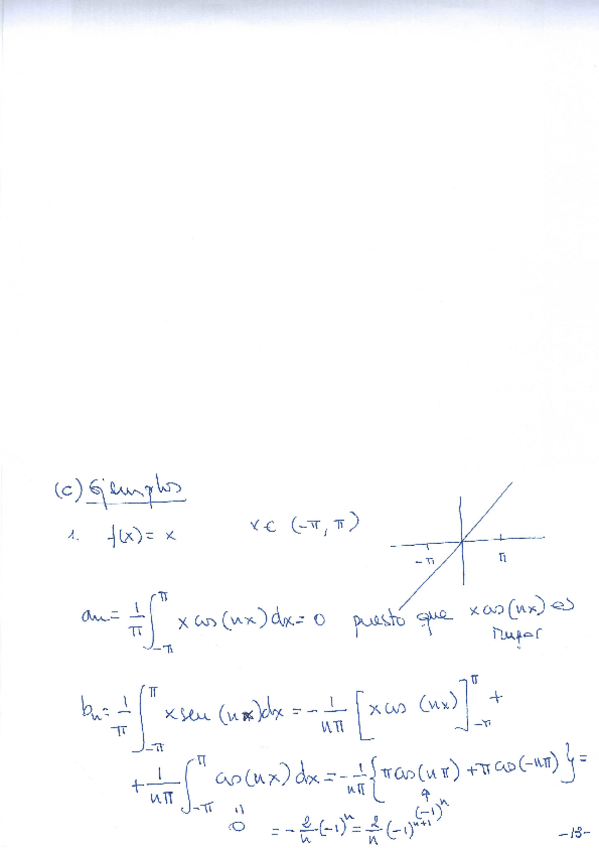 (c) Ejemplos
1. f(x) = x x ∈ (-π, π)
-π π
aₙ = 1/π ∫_{-π}^{π} x cos(nx) dx = 0 puesto que x cos(nx) es
impar
bₙ = 1/π ∫_{-π}^{π} x sen (nx) dx = - 1/nπ [x cos (nx)]_{-π}^{π} +
+ 1/nπ ∫_{-π}^{π} cos(nx) dx = - 1/nπ {π cos(nπ) + π cos(-nπ)} =
" 0 ↑ (-1)ⁿ
= - 2/n (-1)ⁿ = 2/n (-1)ⁿ⁺¹
-13-